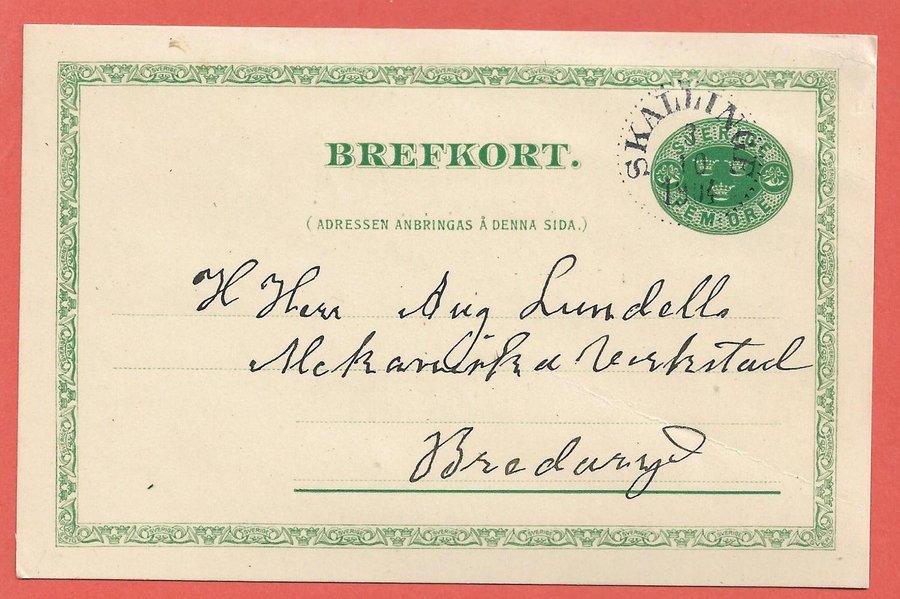 BREFKORT.
(ADRESSEN ANBRINGAS Å DENNA SIDA.)
SKALLINGE
SVERIGE
FEM ÖRE
H Herr Aug Lundells
Mekaniska Verkstad
Bredaryd